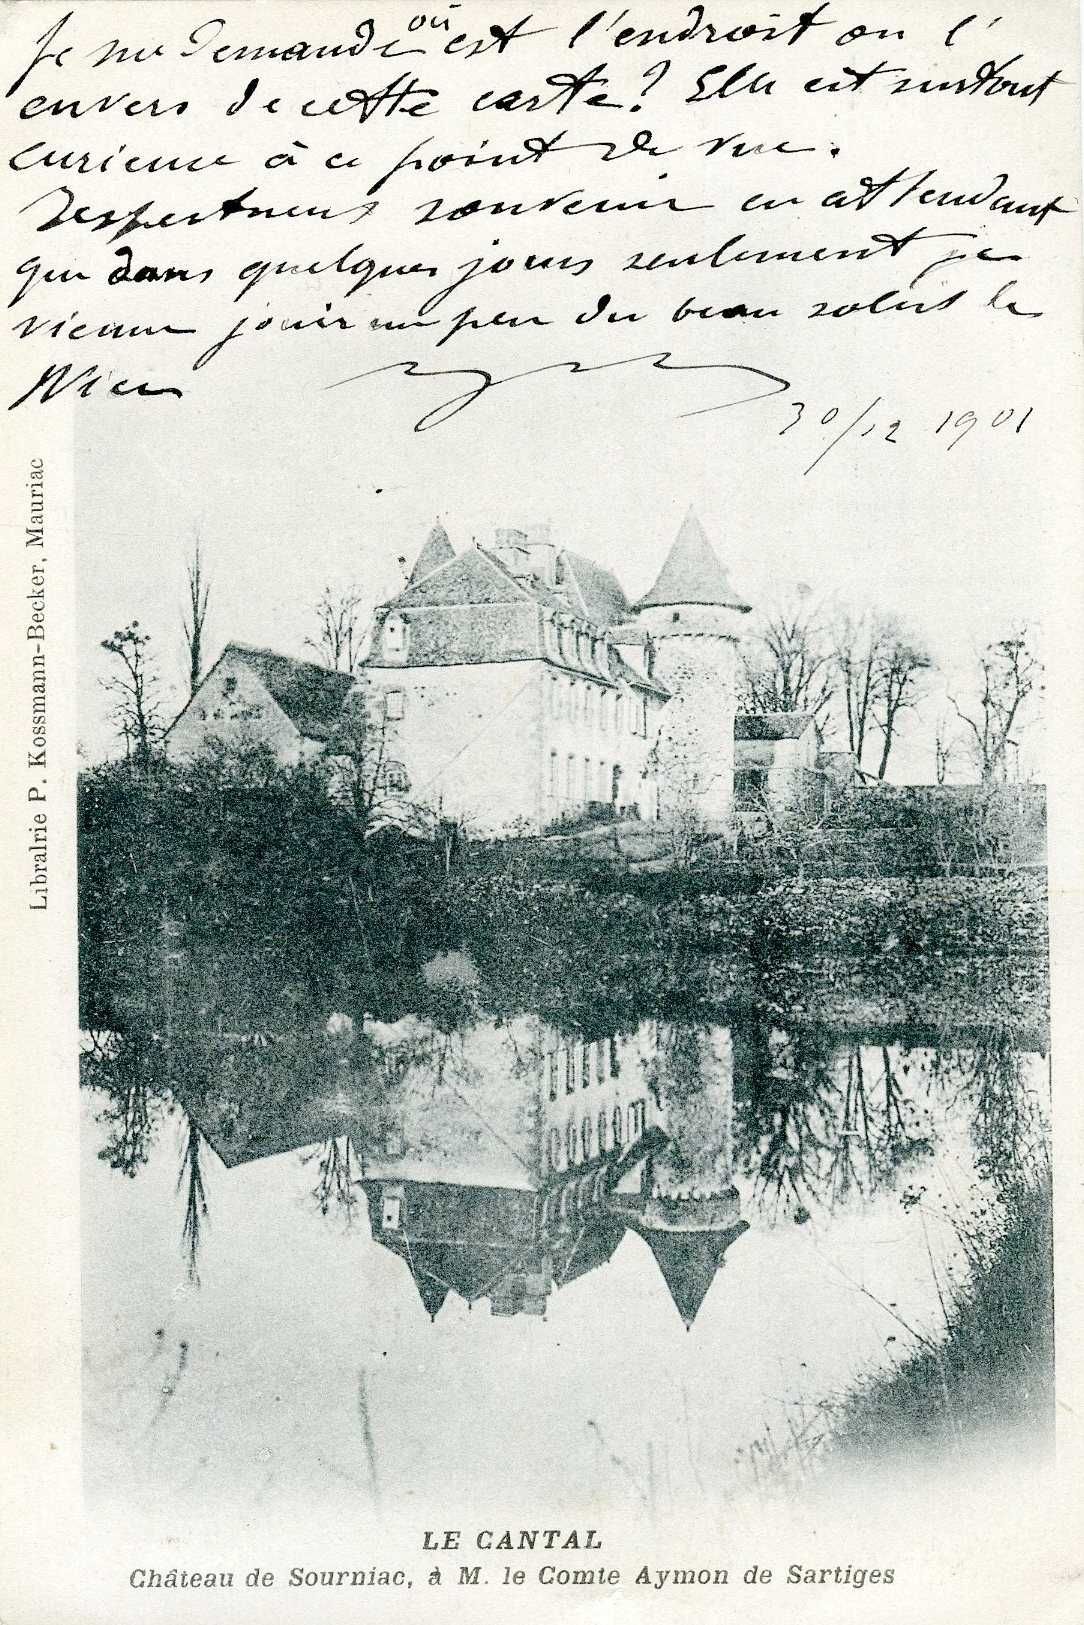 Je me demande où est l'endroit ou l'
envers de cette carte? Elle est surtout
curieuse à ce point de vue.
Respectueux souvenir en attendant
que dans quelques jours seulement je
vienne jouir un peu du beau soleil de
Nice
30/12 1901
Librairie P. Kossmann-Becker, Mauriac
LE CANTAL
Château de Sourniac, à M. le Comte Aymon de Sartiges